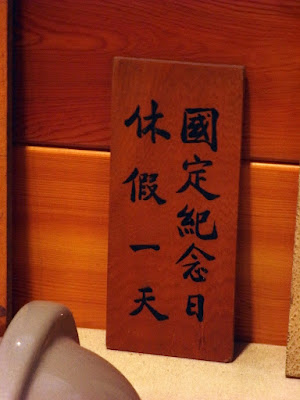 國定紀念日
休假一天